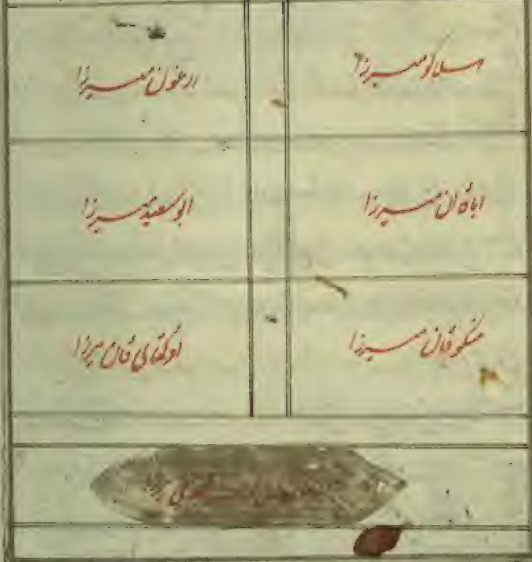 هلاکو میرزا
ارغون میرزا
اباقا ان میرزا
ابوسعید میرزا
منکو قاان میرزا
اوکتای قاان میرزا